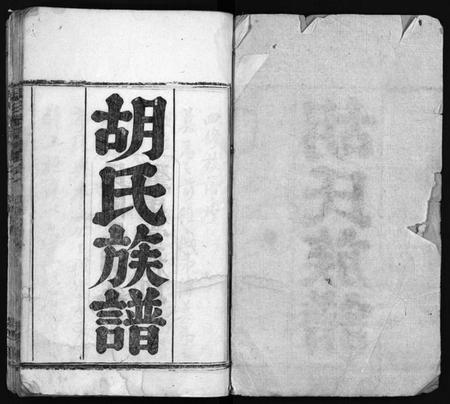 胡氏族譜